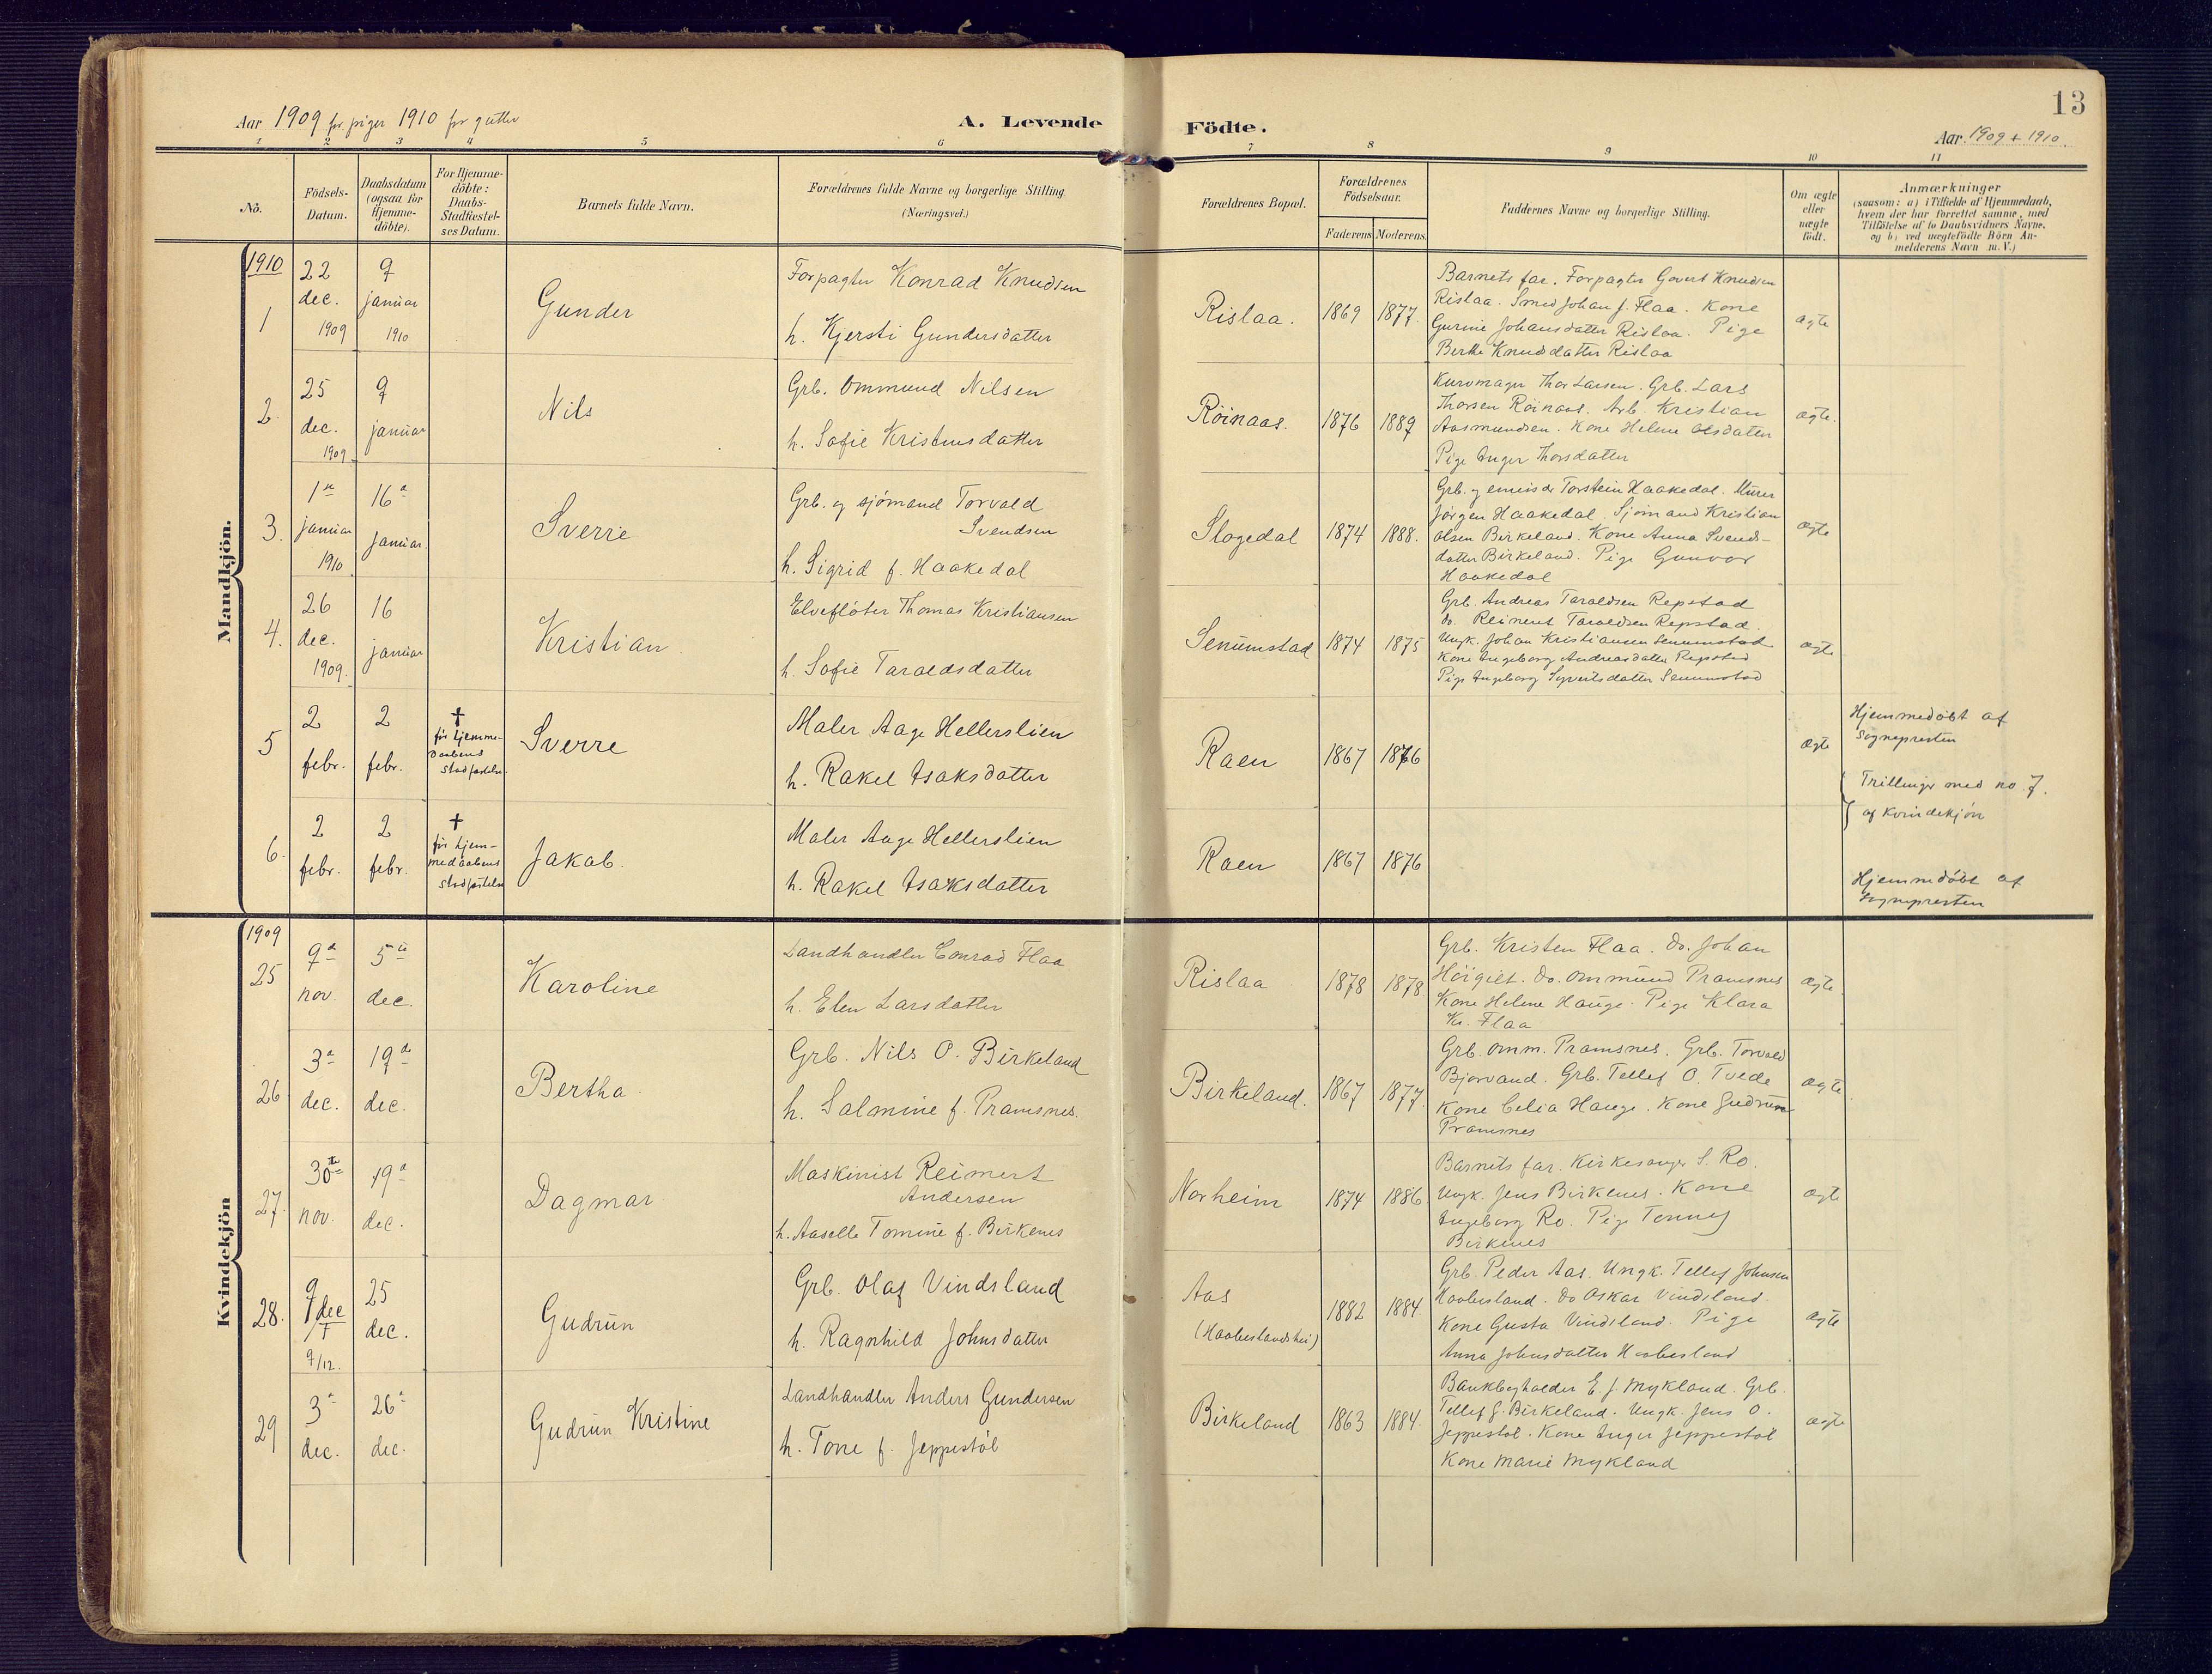 13
Aar 1909 for piger 1910 for gutter
A. Levende Födte.
Aar 1909 + 1910.
1 2 3 4 5 6 7 8 9 10 11
No.
Födsels-
Datum.
Daabsdatum
(ogsaa for
Hjemme-
döbte).
For Hjemme-
döbte:
Daabs-
Stadfæstel-
ses Datum.
Barnets fulde Navn.
Forældrenes fulde Navne og borgerlige Stilling.
(Næringsvei.)
Forældrenes Bopæl.
Forældrenes
Födselsaar.
Faderens Moderens
Faddernes Navne og borgerlige Stilling.
Om ægte
eller
uægte
födt.
Anmærkninger
(saasom: a) i Tilfælde af Hjemmedaab,
hvem der har forrettet samme, med
Tilföielse af to Daabsvidners Navne,
og b) ved uægtefödte Börn An-
melderens Navn m. V.)
Mandkjön.
1910
1
22
dec.
1909
9
januar
1910
Gunder
Forpagter Konrad Knudsen
h. Kjersti Gundersdatter
Rislaa.
1869
1877.
Barnets far. Forpagter Govert Knudsen
Rislaa. Smed Johan J. Flaa. Kone
Gurine Johansdatter Rislaa. Pige
Berthe Knudsdatter Rislaa
ægte
2.
25
dec.
1909
9
januar
Nils
Grb. Ommund Nilsen
h. Sofie Kristensdatter
Röinaas.
1876
1889
Kurvmager Thor Larsen. Grb. Lars
Thorsen Röinaas. Arb. Kristian
Aasmundsen. Kone Helene Olsdatter
Pige Inger Thorsdatter
ægte.
3.
1ste
januar
1910
16d
januar.
Sverre
Grb. og sjömand Torvald
Svendsen
h. Sigrid f. Haakedal
Slogedal
1874
1888.
Grb. og emissær Torstein Haakedal. Murer
Jörgen Haakedal. Sjömand Kristian
Olsen Birkeland. Kone Anna Svends-
datter Birkeland. Pige Gunvor
Haakedal
ægte
4.
26
dec.
1909.
16
januar
Kristian.
Elveflöter Thomas Kristiansen
h. Sofie Taraldsdatter
Senumstad
1874
1875
Grb. Andreas Taraldsen Repstad
do. Reinert Taraldsen Repstad.
Ungk. Johan Kristiansen Senumstad
Kone Ingeborg Andreasdatter Repstad
Pige Ingeborg Syvertsdatter Senumstad
ægte
5
2
febr.
2
febr.
†
för hjemme-
daabens
stadfæstelse.
Sverre
Maler Aage Hellerslien
h. Rakel Isaksdatter
Raen
1867
1876
ægte
Hjemmedöbt af
Sognepresten
Trillinger med no. 7.
af kvindekjön
6.
2
febr.
2
febr.
†
för hjem-
medaabens
stadfæstelse
Jakob.
Maler Aage Hellerslien
h. Rakel Isaksdatter
Raen
1867
1876
Hjemmedöbt af
Sognepresten
Kvindekjön
1909
25
9d
nov.
5te
dec.
Karoline
Landhandler Conrad Flaa
h. Elen Larsdatter
Rislaa
1878
1878
Grb. Kristen Flaa. Do. Johan
Höigilt. Do. Ommund Pramsnes
Kone Helene Hauge. Pige Klara
Kr. Flaa
ægte
26
3d
dec.
19d
dec.
Bertha
Grb. Nils O. Birkeland
h. Salmine f. Pramsnes.
Birkeland.
1867
1877.
Grb. Omm. Pramsnes. Grb. Torvald
Bjorvand. Grb. Tellef O. Tvede
Kone Celia Hauge. Kone Gudrun
Pramsnes
ægte
27.
30te
nov.
19d
dec.
Dagmar
Maskinist Reimert
Andersen
h. Aaselle Tomine f. Birkenes
Norheim
1874
1886
Barnets far. Kirkesanger S. Ro.
Ungk. Jens Birkenes. Kone
Ingeborg Ro. Pige Tenney
Birkenes
ægte
28.
9
dec
†
9/12.
25
dec.
Gudrun
Grb. Olaf Vindsland
h. Ragnhild Johnsdatter
Aas
(Haabeslandshei)
1882
1884
Grb. Peder Aas. Ungk. Tellef Johnsen
Haabesland. Do Oskar Vindsland
Kone Gusta Vindsland. Pige
Anna Johnsdatter Haabesland
ægte
29
3d
dec.
26d
dec.
Gudrun Kristine
Landhandler Anders Gundersen
h. Tone f. Jeppestöl
Birkeland
1863
1884.
Bankbogholder E. J. Mykland. Grb.
Tellef G. Birkeland. Ungk. Jens O.
Jeppestöl. Kone Inger Jeppestöl
Kone Marie Mykland
ægte